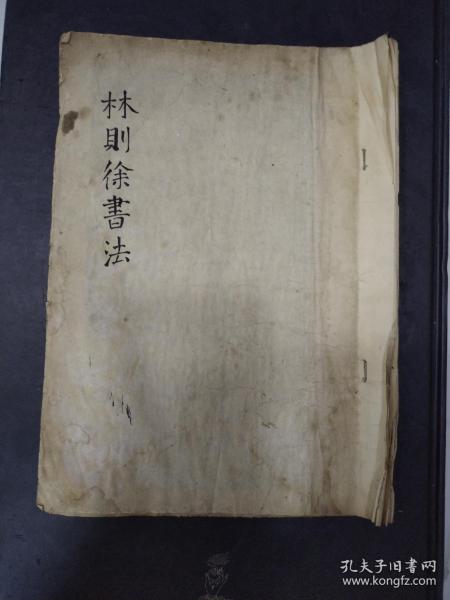 林則徐書法
孔夫子旧书网
www.kongfz.com